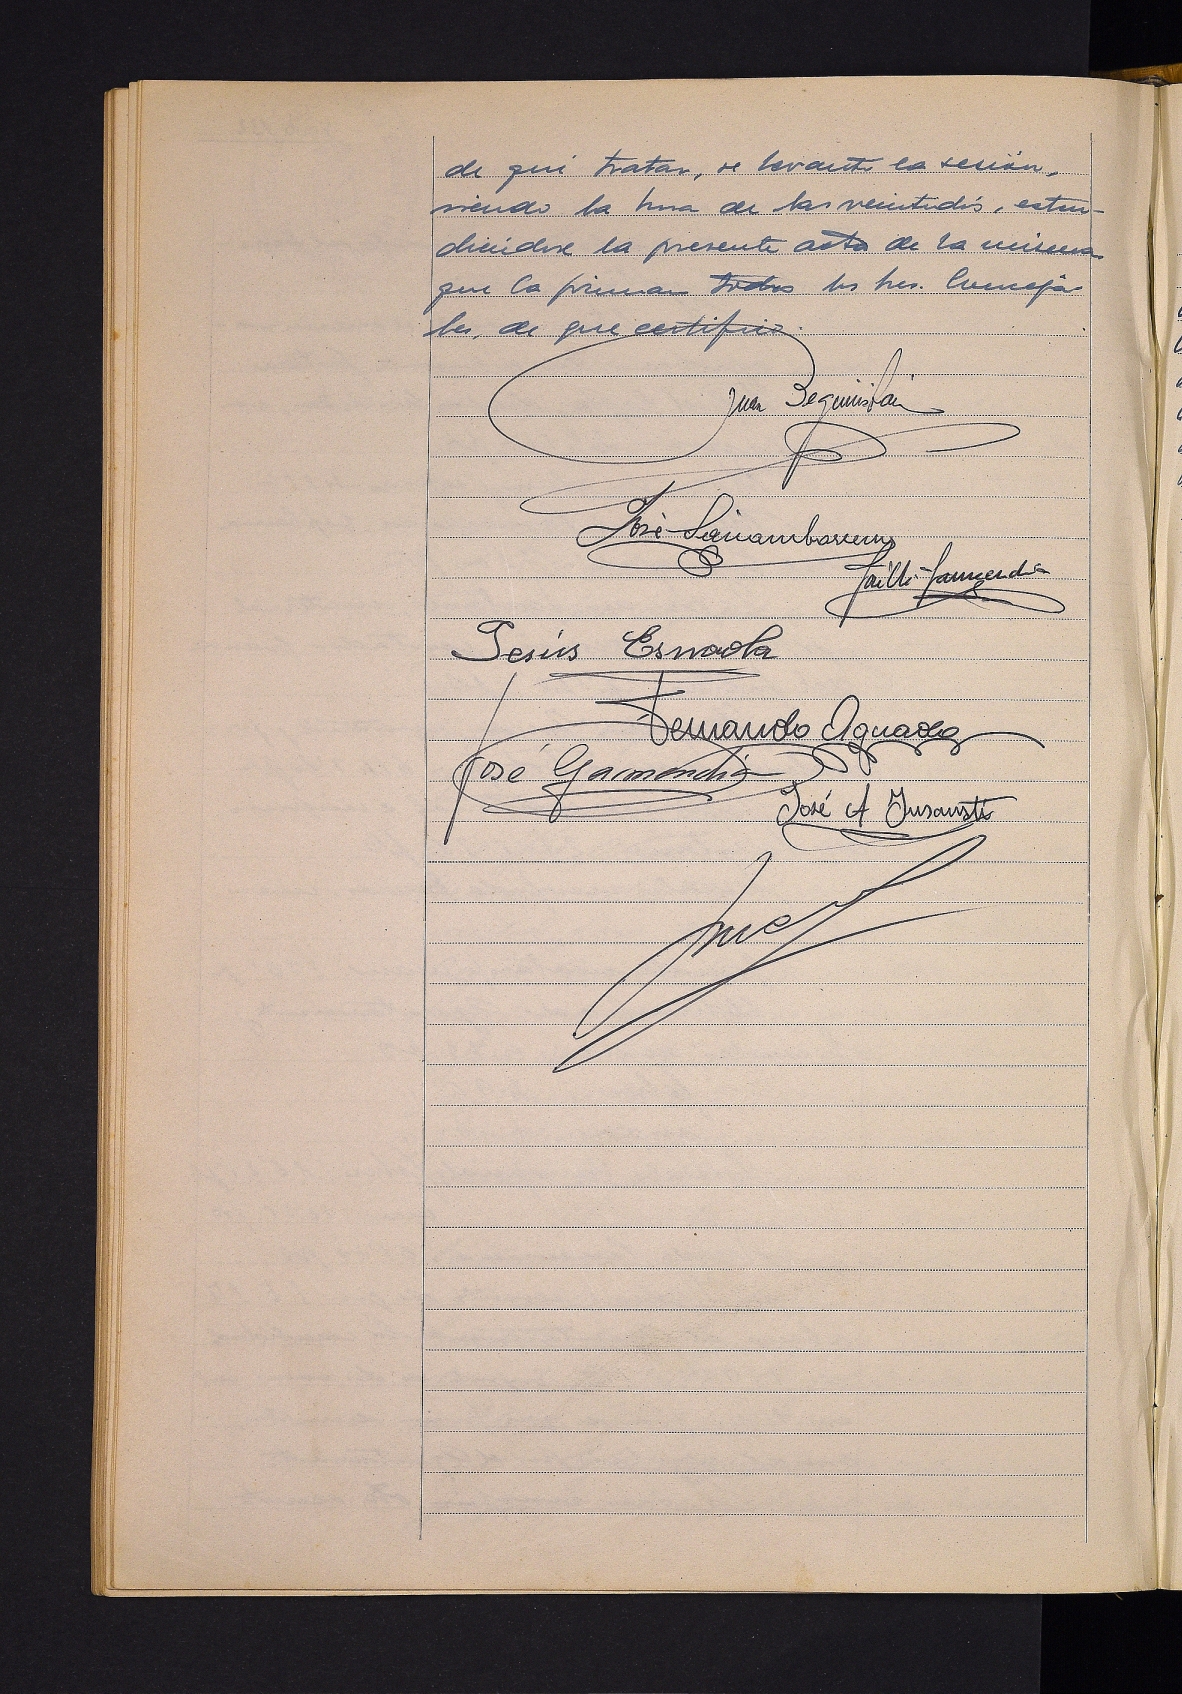 de qué tratar, se levantó la sesión,
siendo la hora de las veintidós, exten-
diéndose la presente acta de la misma
que la firman todos los tres. Conceja-
les, de que certifico.
Juan Beguiristain
José
Garmendia
Jesús Esnaola
Fernando Aguado
José Garmendia
José A Insausti